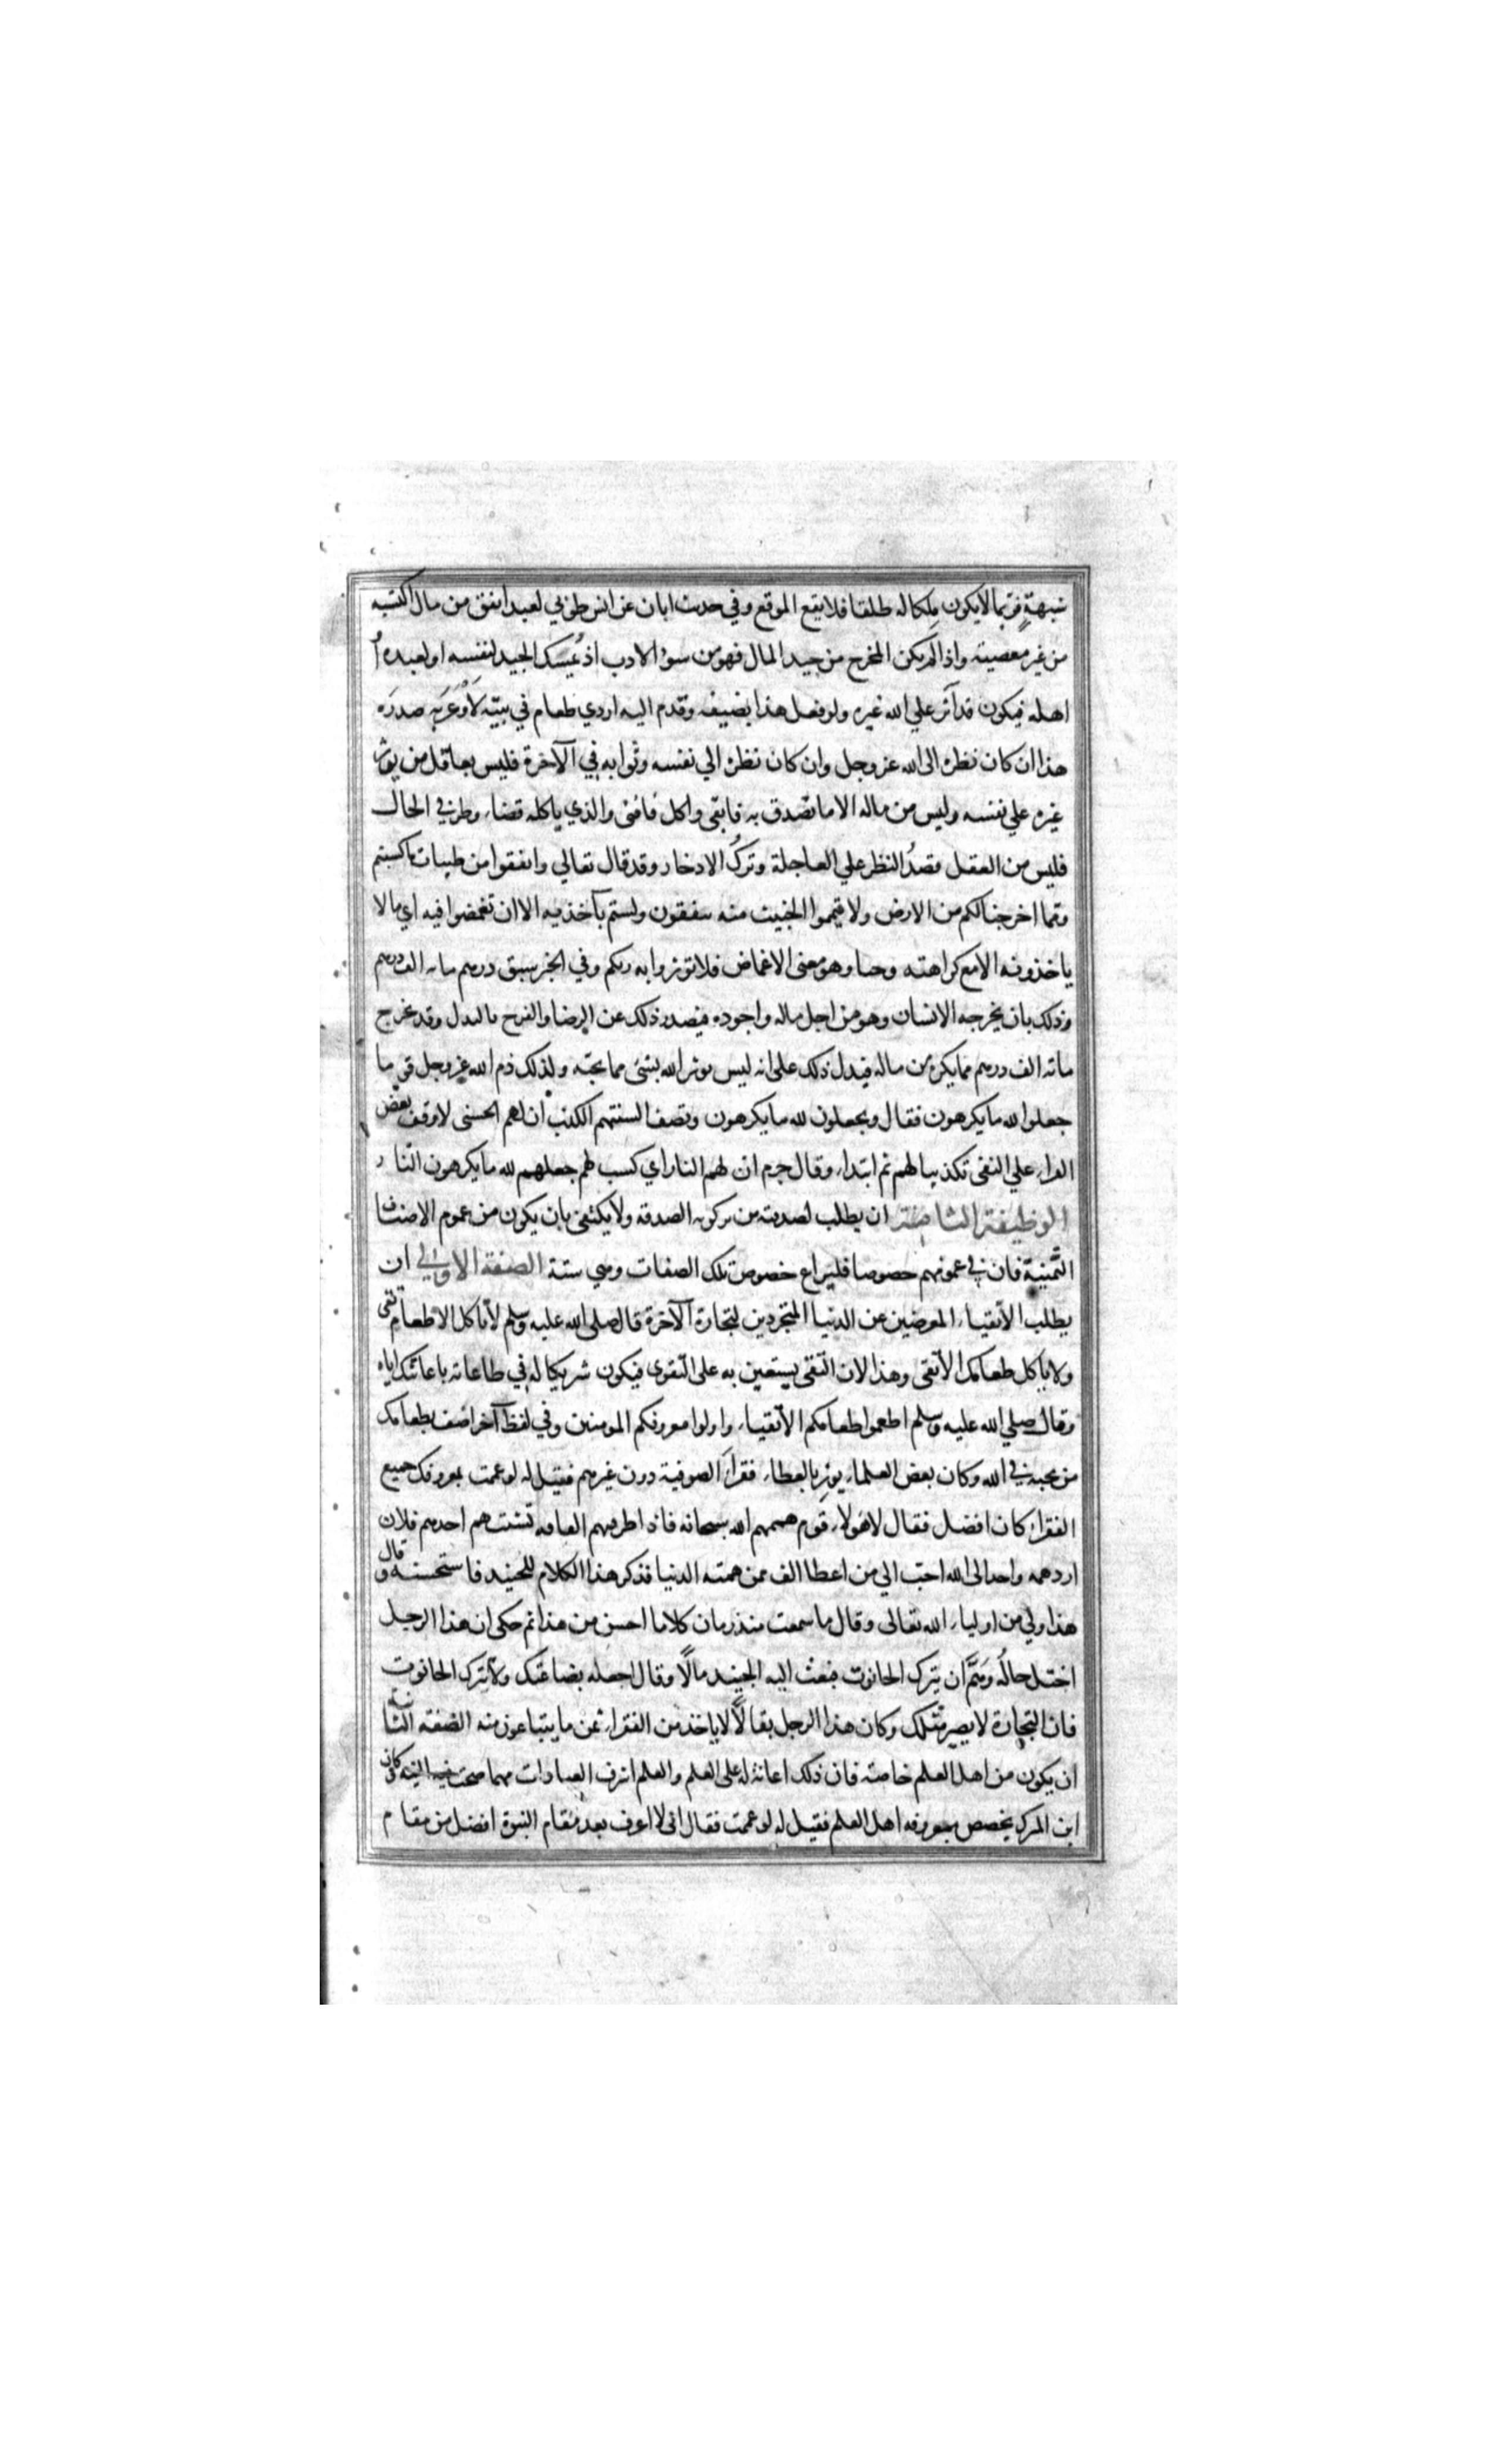 شبهةٍ فربما لا يكون ملكا له طلقا فلا يقع الموقع وفي حديث ابان عن انس طوبي لعبد انفق من مال اكتسبه
من غير معصيته واذا لم يكن المخرج من جيد المال فهو من سوء الادب اذ يُمسك الجيد لنفسه او لعبده او
اهله فيكون قد آثر علي الله غيره ولو فعل هذا بضيفه وقدم اليه اردي طعام في بيته لَاَوْغَرَ به صدرَه
هذا ان كان نظره الى الله عز وجل وان كان نظره الي نفسه وثوابه في الآخرة فليس بعاقل من يوثر
غيره علي نفسه وليس من ماله الا ما تصدق به فابقى واكل فافنى والذي ياكله قضاء وطر في الحال
فليس من العقل قصدُ النظر علي العاجلة وتركُ الادخار وقد قال تعالي وانفقوا من طيبات ما كسبتم
ومما اخرجنا لكم من الارض ولا تيمموا الخبيث منه تنفقون ولستم بآخذيه الا ان تغمضوا فيه اي ما لا
ياخذونه الا مع كراهته وحيا وهو معنى الاغماض فلا توثروا به ربكم وفي الخبر سبق درهم مائة الف درهم
وذلك بان يخرجه الانسان وهو من اجل ماله واجوده فيصدر ذلك عن الرضا والفرح بالبدل وقد يخرج
مائة الف درهم مما يكره من ماله فيدل ذلك على انه ليس يوثر الله بشئ مما يحبه ولذلك ذم الله عز وجل قوما
جعلوا لله ما يكرهون فقال ويجعلون لله ما يكرهون وتصف السنتهم الكذب ان لهم الحسنى لا وقف بعض
القراء علي النفى تكذيبا لهم ثم ابتداء وقال جرم ان لهم النار اي كسب لهم جعلهم لله ما يكرهون النار
الوظيفة الثامنة ان يطلب لصدقته من تزكو به الصدقة ولا يكتفى بان يكون من عموم الاصناف
الثمنية فان في عمومهم خصوصا فليراع خصوص تلك الصفات وهي ستة الصفة الاولي ان
يطلب الأتقياء المعرضين عن الدنيا المتجردين لتجارة الآخرة قال صلى الله عليه وسلم لا تاكل الا طعام تقى
ولا ياكل طعامك الا تقى وهذا لان التقى يستعين به على التقوى فيكون شريكا له في طاعاته باعانتك اياه
وقال صلي الله عليه وسلم اطعموا طعامكم الأتقياء واولوا معروفكم المومنين وفي لفظ آخر اضف بطعامك
من تحبه في الله وكان بعض العلماء يوثر بالعطاء فقراَ الصوفية دون غيرهم فقيل له لو عمت بمعروفك جميع
الفقراء كان افضل فقال لا هولاء قوم هممهم الله سبحانه فاذا طرقهم الفاقه تشتت هم احدهم فلان
اردهمه واحد الى الله احب الي من اعطا الف ممن همته الدنيا فذكر هذا الكلام للجنيد فاستحسنه وقال
هذا ولي من اولياء الله تعالى وقال ما سمعت منذ زمان كلاما احسن من هذا ثم حكى ان هذا الرجل
اختل حالُه وهَمَّ ان يترك الحانوت فبعث اليه الجنيد مالًا وقال اجعله بضاعتك ولا تترك الحانوت
فان التجارة لا يصير مثلك وكان هذا الرجل بقالًا لا ياخذ من الفقراء ثمن ما يبتاعون منه الصفة الثانية
ان يكون من اهل العلم خاصة فان ذلك اعانة له على العلم والعلم اشرف العبادات مهما صحت فيه النية وكان
ابن المبرك يخصص بمعروفه اهل العلم فقيل له لو عممت فقال انى لا اعرف بعد مقام النبوة افضل من مقام